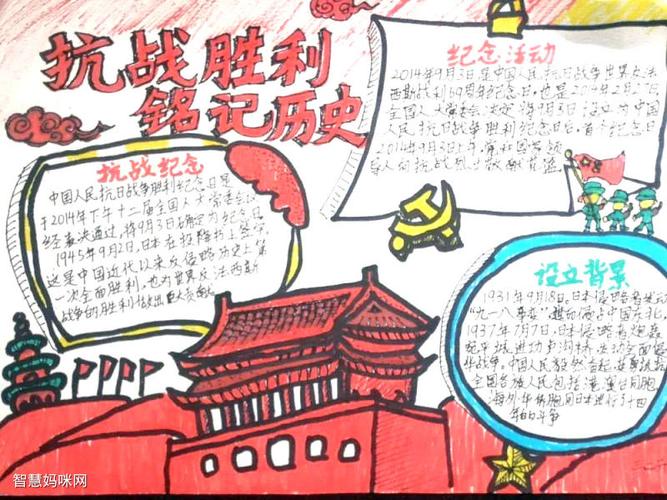 抗战胜利
铭记历史
纪念活动
2014年9月3日是中国人民抗日战争世界反法
西斯战利69周年纪念日,也是2014年2月27日
全国人大常委会决定将9月3日设立为中国
人民抗日战争胜利纪念日后,首个纪念日
2014年9月3日上午,党和国家领
导人向抗战烈士敬献花篮
抗战纪念
中国人民抗日战争胜利纪念日是
于2014年下午十二届全国人大常委会
经表决通过,将9月3日确定为纪念日
1945年9月2日,日本在投降书上签字
这是中国近代以来反侵略历史上第
一次全面胜利,也为世界反法西斯
战争的胜利做出巨大贡献
设立背景
1931年9月18日,日本侵略者
"九一八事变"占中国东北
1937年7月7日,日本侵略者炮轰
宛平城进攻卢沟桥,全面
华战争。中国人民毅然奋起
全国各族人民包括港澳台同胞
海外华侨同日本进行了十四
年的斗争
智慧妈咪网